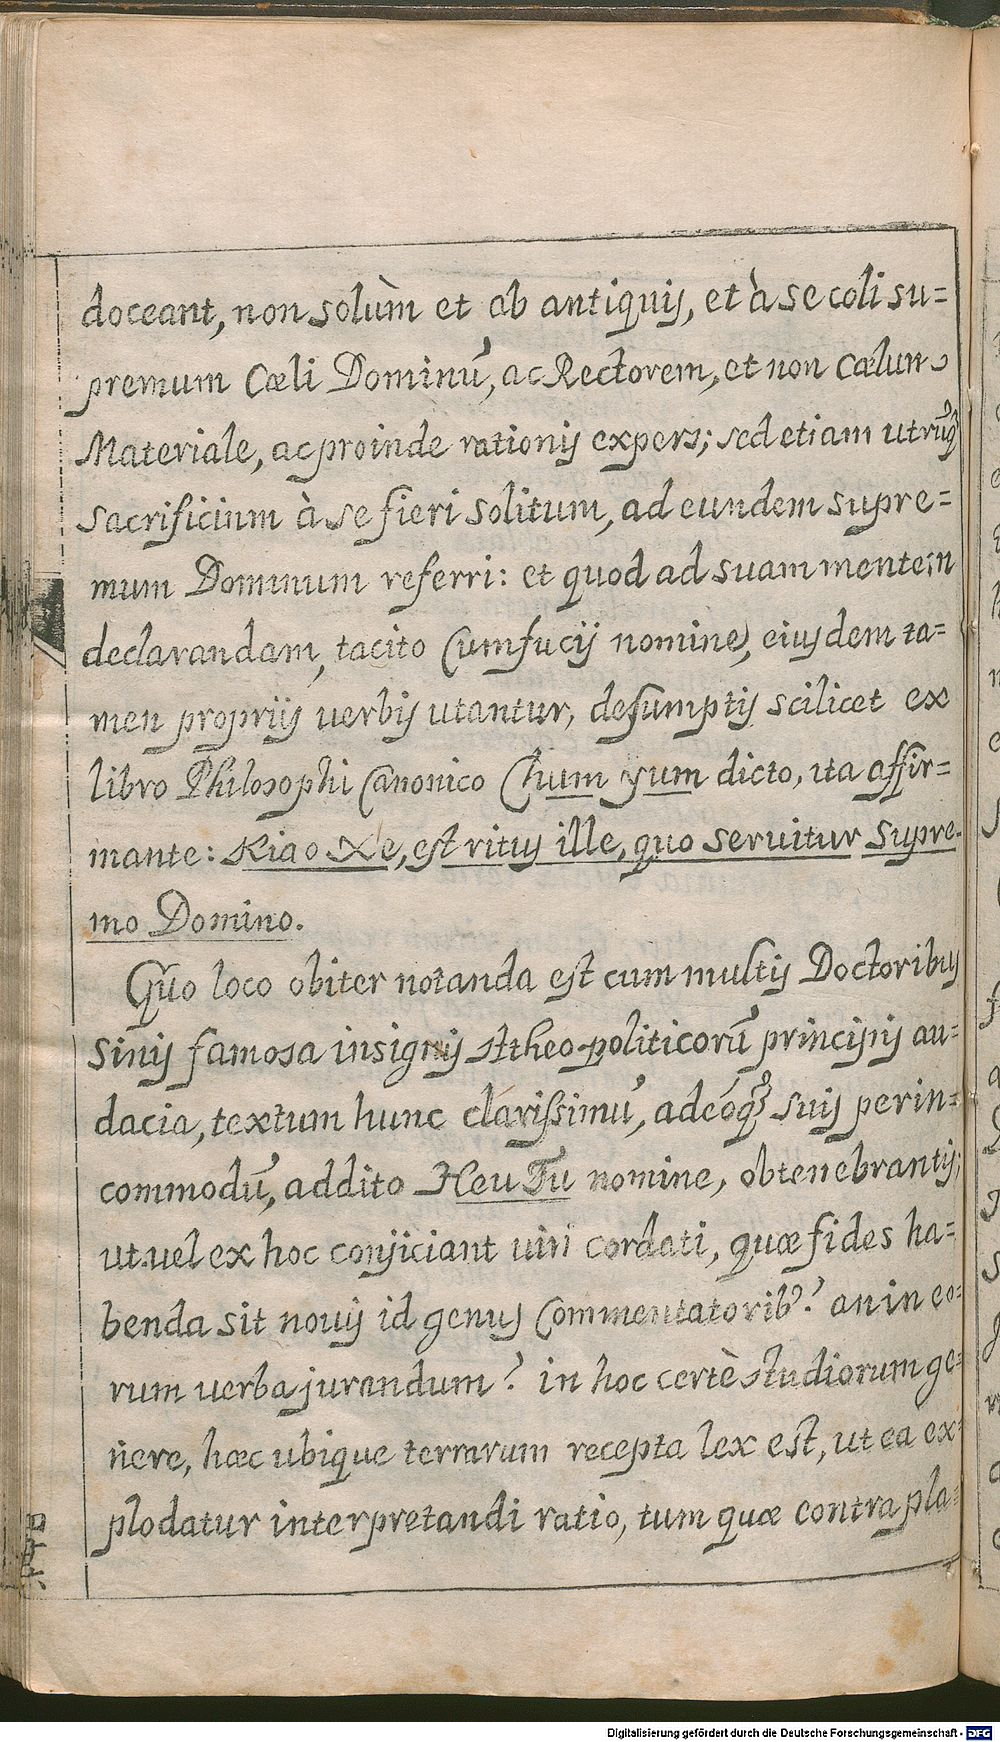 doceant, non solùm et ab antiquis, et à se coli su=
premum Cœli Dominũ, ac Rectorem, et non Cœlum
Materiale, ac proinde rationis expers; sed etiam utrũq̃
sacrificium à se fieri solitum, ad eundem supre=
mum Dominum referri: et quod ad suam mentem
declarandam, tacito Cumfucij nomine, eiusdem ta=
men proprijs verbis utantur, desumptis scilicet ex
libro Philosophi Canonico Chum yum dicto, ita affir=
mante: Kiao Xe, est ritus ille, quo seruitur Supre-
mo Domino.
Quo loco obiter notanda est cum multis Doctoribus
Sinis famosa insignis Atheo-politicorũ principis au=
dacia, textum hunc clarissimũ, adeóq3 suis perin=
commodũ, addito Heu Tu nomine, obtenebrantis;
ut vel ex hoc conjiciant viri cordati, quæ fides ha=
benda sit nouis id genus Commentatorib9? an in eo=
rum verba jurandum? in hoc certè studiorum ge=
nere, hæc ubique terrarum recepta lex est, ut ea ex=
plodatur interpretandi ratio, tum quæ contra pla=
Digitalisierung gefördert durch die Deutsche Forschungsgemeinschaft - DFG